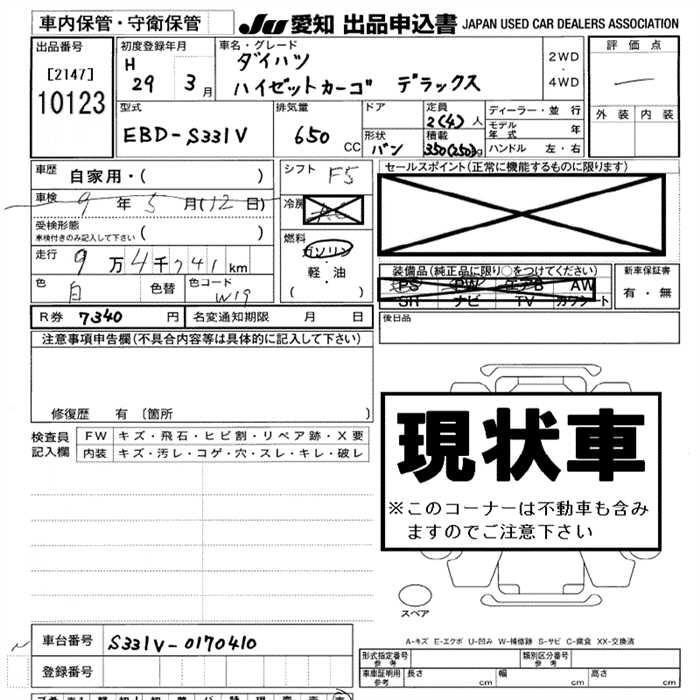 車内保管・守衛保管
JU 愛知 出品申込書 JAPAN USED CAR DEALERS ASSOCIATION
出品番号
[2147]
10123
初度登録年月
H 29 3月
車名・グレード
ダイハツ
ハイゼットカーゴ デラックス
2WD
・
4WD
評価点
外装 内装
型式
EBD-S331V
排気量
650 CC
ドア
形状
バン
定員
2(4)人
積載
350(250)kg
ディーラー・並行
モデル年式 年
ハンドル 左・右
車歴
自家用・( )
車検 9年5月(12日)
受検形態
車検付きのみ記入して下さい ( )
走行 9万4千741km
色 白 色替 色コード W19
シフト F5
冷房
燃料
ガソリン
・
軽・油
( )
セールスポイント(正常に機能するものに限ります)
装備品(純正品に限り○をつけてください)
PS PW エアB AW
SR ナビ TV カワシート
新車保証書
有・無
R券 7340 円 名変通知期限 月 日
後日品
注意事項申告欄(不具合内容等は具体的に記入して下さい)
修復歴 有 〔箇所 〕
検査員
記入欄
FW キズ・飛石・ヒビ割・リペア跡・X要
内装 キズ・汚レ・コゲ・穴・スレ・キレ・破レ
現状車
※このコーナーは不動車も含み
ますのでご注意下さい
スペア
A-キズ E-エクボ U-凹み W-補修跡 S-サビ C-腐食 XX-交換済
車台番号 S331V-0170410
登録番号
形式指定番号
参考
類別区分番号
参考
車庫証明用
参考
長さ cm 幅 cm 高さ cm